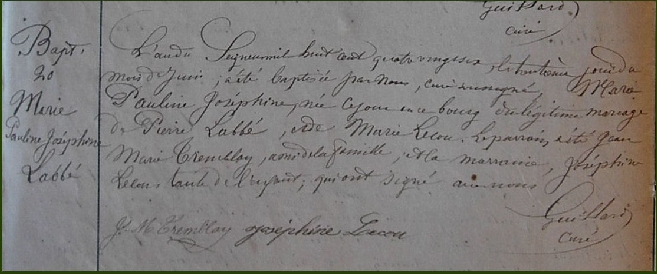 Guillard
curé
Bapt.
20
Marie
Pauline Joséphine
Labbé
L'an du Seigneur mil huit cent quatre vingt six, le trentième jour du
mois de Juin, a été baptisée par nous, curé soussigné, Marie
Pauline Joséphine, née ce jour en ce bourg du légitime mariage
de Pierre Labbé, et de Marie Lecou. Le parrain a été Jean
Marie Tremblay, ami de la famille, et la marraine, Joséphine
Lecou tante de l'enfant, qui ont signé avec nous
Guillard
curé
J. M. Tremblay Joséphine Lecou